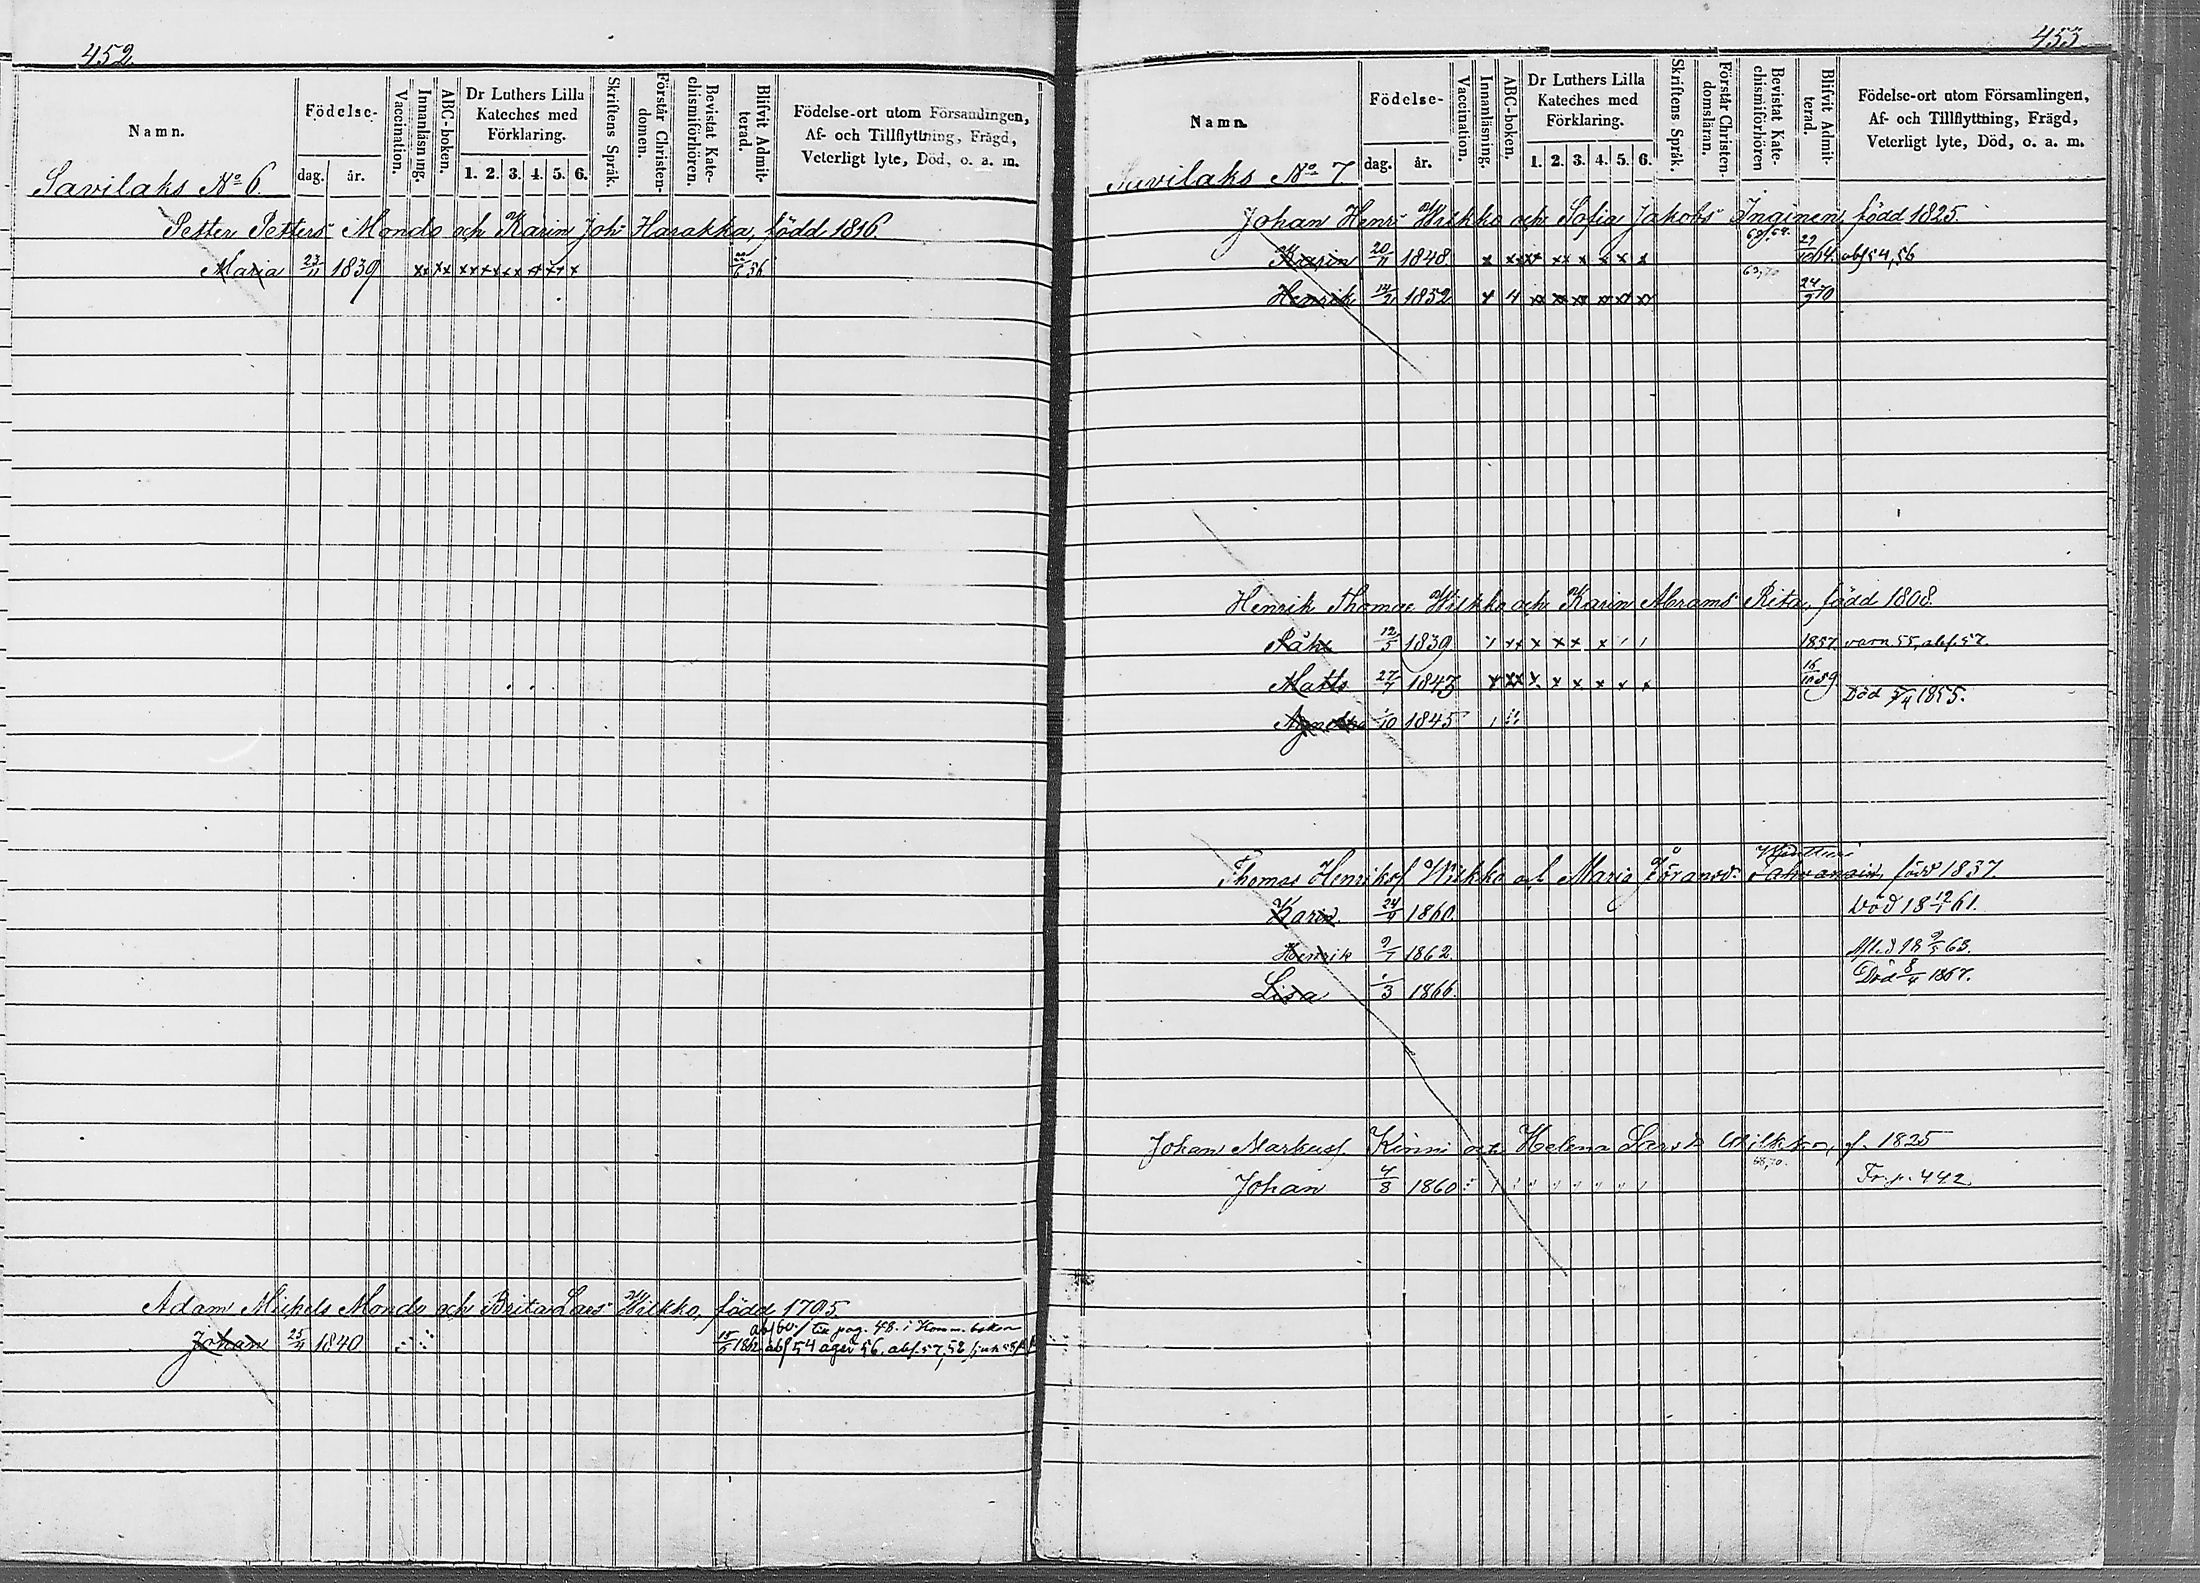 452.
Namn.
Födelse-
dag. år.
Vaccination.
Innanläsning.
ABC-boken.
Dr Luthers Lilla
Kateches med
Förklaring.
1. 2. 3. 4. 5. 6.
Skriftens Språk.
Förstår Christen-
domen.
Bevistat Kate-
chismiförhören.
Blifvit Admit-
terad.
Födelse-ort utom Församlingen,
Af- och Tillflyttning, Frägd,
Veterligt lyte, Död, o. a. m.
Savilaks No 6.
Petter Petters Mondo och Karin Joh: Harakka, född 1816.
Maria 23/11 1839 22/6 56
Adam Michels Mondo och Brita Lars Wilkko, född 1795.
abs 60. / pag. 48. i Komm. boken
Johan 25/4 1840 15/6 1862 abs 54 56. abs. 57, 58
453
Namn.
Födelse-
dag. år.
Vaccination.
Innanläsning.
ABC-boken.
Dr Luthers Lilla
Kateches med
Förklaring.
1. 2. 3. 4. 5. 6.
Skriftens Språk.
Förstår Christen-
domsläran.
Bevistat Kate-
chismiförhören
Blifvit Admit-
terad.
Födelse-ort utom Församlingen,
Af- och Tillflyttning, Frägd,
Veterligt lyte, Död, o. a. m.
Savilaks No 7.
Johan Henr: Wilkko och Sofia Jakobs Inginen, född 1825.
Karin 20/11 1848 64. abs 54, 56
Henrik 1852 4 24/9 70
Henrik Thomae Wilkko och Karin Abrams Rita, född 1808.
12/5 1839 1857. varn. 55, abs. 57.
Matts 27/7 1843 16/10 59
Död 1855.
1/10 1845
Thomas Henriks Wilkko och Maria Göransd: född 1837
Karin 24/4 1860. Död 18 12/1 61.
Henrik 9/7 1862 18 9/5 63.
Lisa 1/3 1866. Död 8/4 1867.
Johan Markus Kinni och Helena Larsd. Wilkko, f. 1825
68, 70.
Johan 4/8 1860 Fr. p. 442